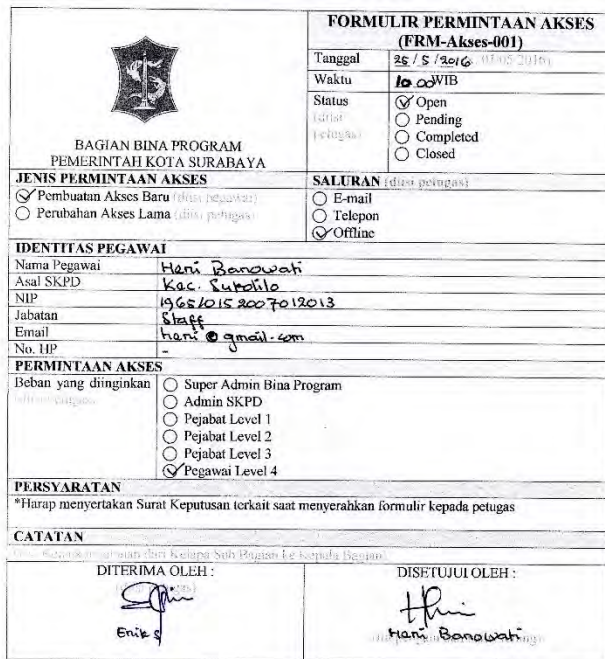 FORMULIR PERMINTAAN AKSES
(FRM-Akses-001)
Tanggal 25/5/2016
Waktu 10.00 WIB
Status Open
Pending
Completed
Closed
BAGIAN BINA PROGRAM
PEMERINTAH KOTA SURABAYA
JENIS PERMINTAAN AKSES
Pembuatan Akses Baru (diisi pegawai)
Perubahan Akses Lama (diisi petugas)
SALURAN (diisi petugas)
E-mail
Telepon
Offline
IDENTITAS PEGAWAI
Nama Pegawai Heni Banowati
Asal SKPD Kec. Sukolilo
NIP 196510152007012013
Jabatan Staff
Email heni@gmail.com
No. HP -
PERMINTAAN AKSES
Beban yang diinginkan
Super Admin Bina Program
Admin SKPD
Pejabat Level 1
Pejabat Level 2
Pejabat Level 3
Pegawai Level 4
PERSYARATAN
*Harap menyertakan Surat Keputusan terkait saat menyerahkan formulir kepada petugas
CATATAN
DITERIMA OLEH :
Erik S
DISETUJUI OLEH :
Heni Banowati